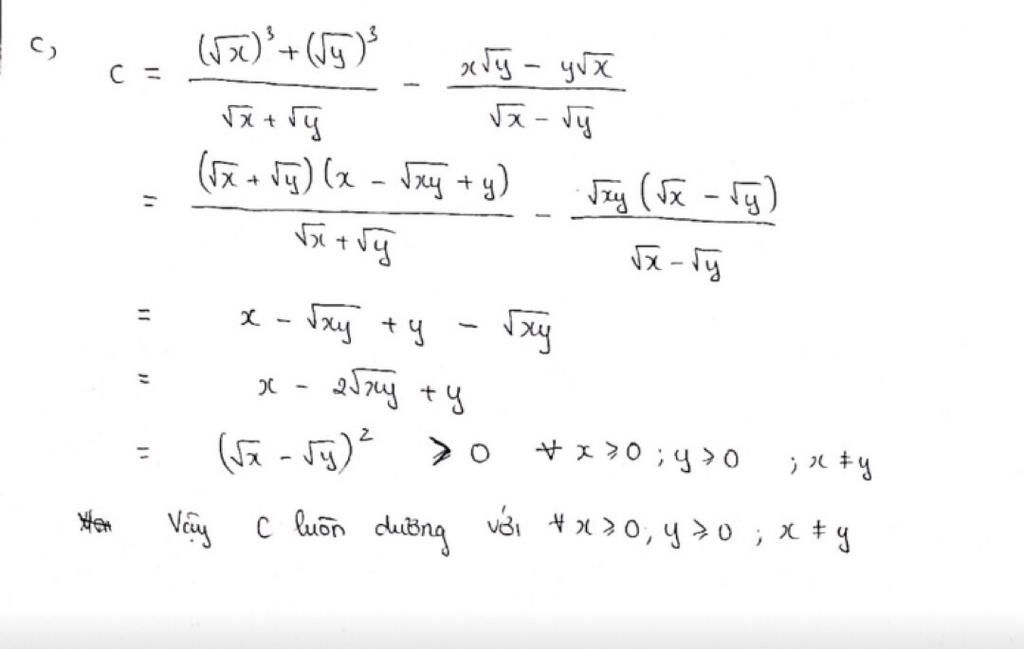 c,
C = ((√x)³ + (√y)³)/(√x + √y) - (x√y - y√x)/(√x - √y)
= ((√x + √y)(x - √xy + y))/(√x + √y) - (√xy(√x - √y))/(√x - √y)
= x - √xy + y - √xy
= x - 2√xy + y
= (√x - √y)² ⩾ 0 ∀ x ⩾ 0 ; y ⩾ 0 ; x ≠ y
Vậy C luôn dương với ∀ x ⩾ 0, y ⩾ 0 ; x ≠ y